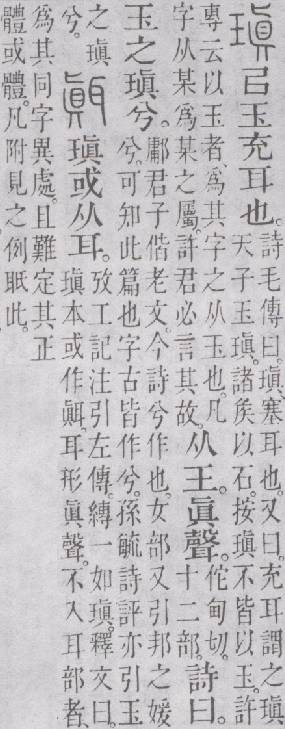 瑱㠯玉充耳也。
詩毛傳曰。瑱、塞耳也。又曰。充耳謂之瑱
天子玉瑱。諸矦以石。按瑱不皆以玉。許
專云以玉者、爲其字之从玉也。凡
字从某爲某之屬。許君必言其故。
从王。眞聲。
佗甸切。
十二部。
詩曰。
玉之瑱兮。
鄘君子偕老文。今詩兮作也。女部又引邦之媛
兮、可知此篇也字古皆作兮。孫毓詩評亦引玉
之瑱
兮。
𦗁瑱或从耳。
攷工記注引左傳。縳一如瑱。釋文曰。
瑱本或作𦗁。耳形眞聲。不入耳部者、
爲其同字異處。且難定其正
體或體。凡附見之例眂此。